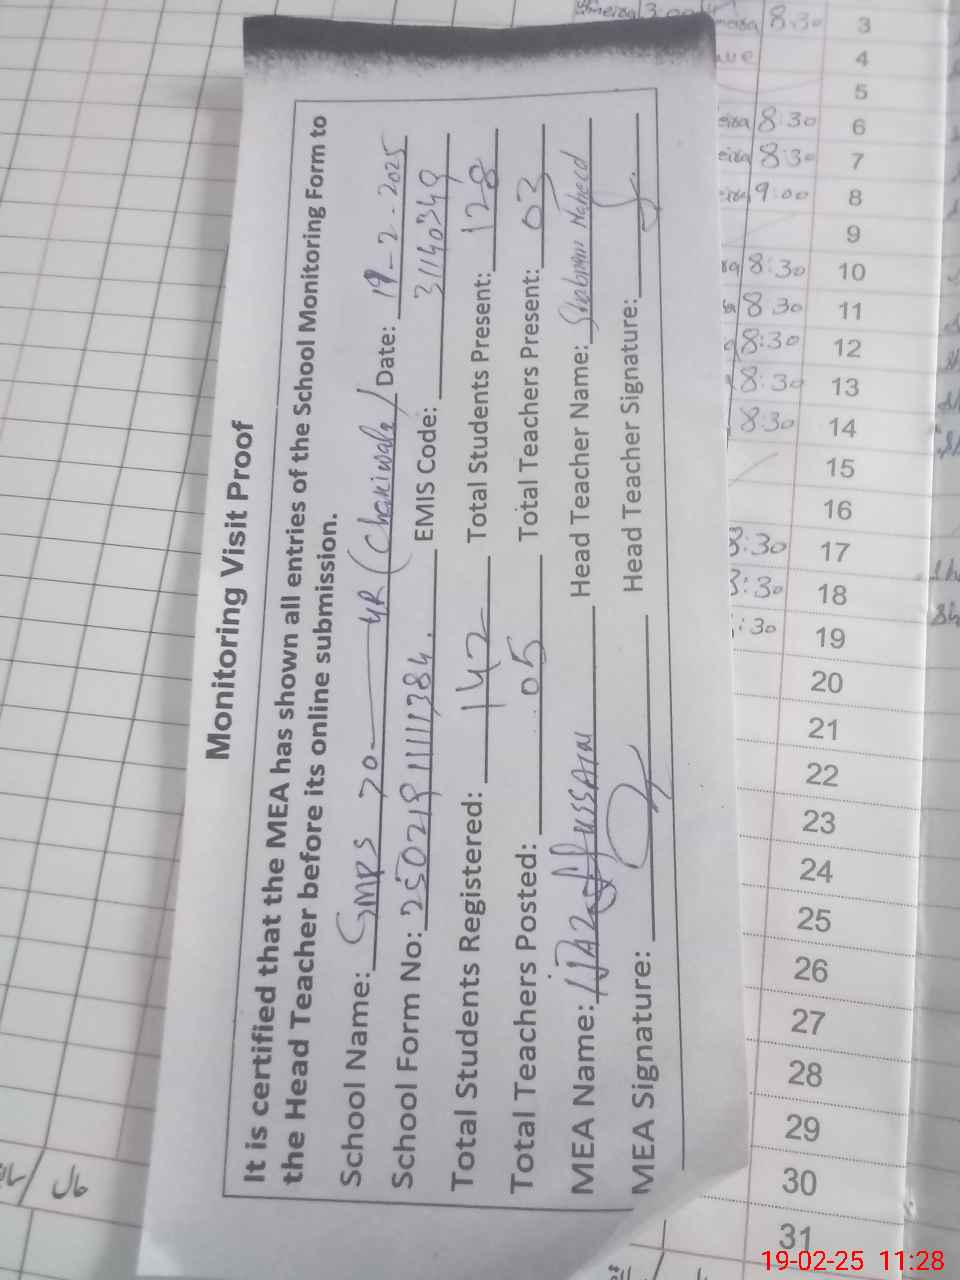 Monitoring Visit Proof
It is certified that the MEA has shown all entries of the School Monitoring Form to
the Head Teacher before its online submission.
School Name: GMPS 70 4R (Chakiwala) Date: 19-2-2025
School Form No: 250219111111384. EMIS Code: 31140349
Total Students Registered: 142 Total Students Present: 128
Total Teachers Posted: 05 Total Teachers Present: 03
MEA Name: IJAZ HUSSAIN Head Teacher Name: Shabnam Naheed
MEA Signature: Head Teacher Signature:
8:30 3
4
5
8:30 6
8:30 7
9:00 8
9
8:30 10
8:30 11
8:30 12
8:30 13
8:30 14
15
16
:30 17
:30 18
:30 19
20
21
22
23
24
25
26
27
28
29
30
31
19-02-25 11:28